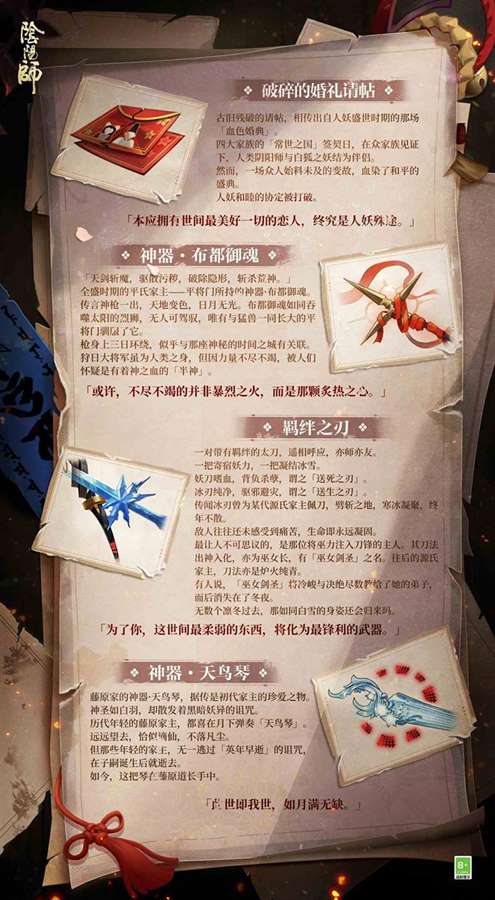 陰陽師
破碎的婚礼请帖
古旧残破的请帖，相传出自人妖盛世时期的那场
「血色婚典」。
四大家族的「常世之国」签契日，在众家族见证
下，人类阴阳师与白狐之妖结为伴侣。
然而，一场众人始料未及的变故，血染了和平的
盛典。
人妖和睦的协定被打破。
「本应拥有世间最美好一切的恋人，终究是人妖殊途。」
神器·布都御魂
「天剑斩魔，驱散污秽，破除隐形，斩杀荒神。」
全盛时期的平氏家主——平将门所持的神器·布都御魂。
传言神枪一出，天地变色，日月无光。布都御魂如同吞
噬太阳的烈狮，无人可驾驭，唯有与猛兽一同长大的平
将门驯服了它。
枪身上三日环绕，似乎与那座神秘的时间之城有关联。
狩日大将军虽为人类之身，但因力量不尽不竭，被人们
怀疑是有着神之血的「半神」。
「或许，不尽不竭的并非暴烈之火，而是那颗炙热之心。」
羁绊之刃
一对带有羁绊的太刀，遥相呼应，亦师亦友。
一把寄宿妖力，一把凝结冰雪。
妖刀嗜血，背负杀孽，谓之「送死之刃」。
冰刃纯净，驱邪避灾，谓之「送生之刃」。
传闻冰刃曾为某代源氏家主佩刀，劈斩之地，寒冰凝聚，终
年不散。
敌人往往还未感受到痛苦，生命即永远凝固。
最让人不可思议的，是那位将巫力注入刀锋的主人。其刀法
出神入化，亦为巫女长，有「巫女剑圣」之名。往后的源氏
家主，刀法亦是炉火纯青。
有人说，「巫女剑圣」将冷峻与决绝尽数教给了她的弟子，
而后消失在了冬夜。
无数个凛冬过去，那如同白雪的身姿还会归来吗。
「为了你，这世间最柔弱的东西，将化为最锋利的武器。」
神器·天鸟琴
藤原家的神器·天鸟琴，据传是初代家主的珍爱之物。
神圣如白羽，却散发着黑暗妖异的诅咒。
历代年轻的藤原家主，都喜在月下弹奏「天鸟琴」。
远远望去，恰似谪仙，不落凡尘。
但那些年轻的家主，无一逃过「英年早逝」的诅咒，
在子嗣诞生后就逝去。
如今，这把琴在藤原道长手中。
「此世即我世，如月满无缺。」
8+